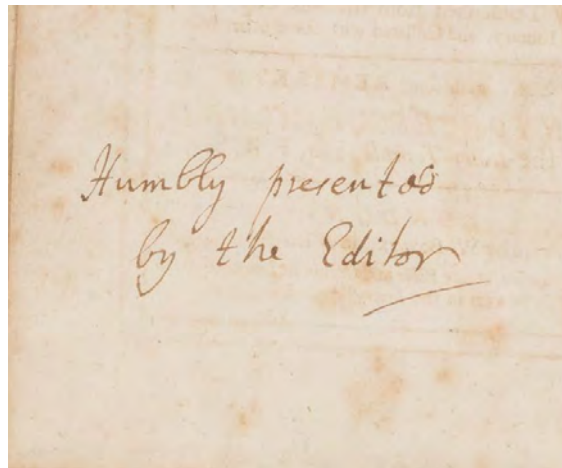 Humbly presented
by the Editor